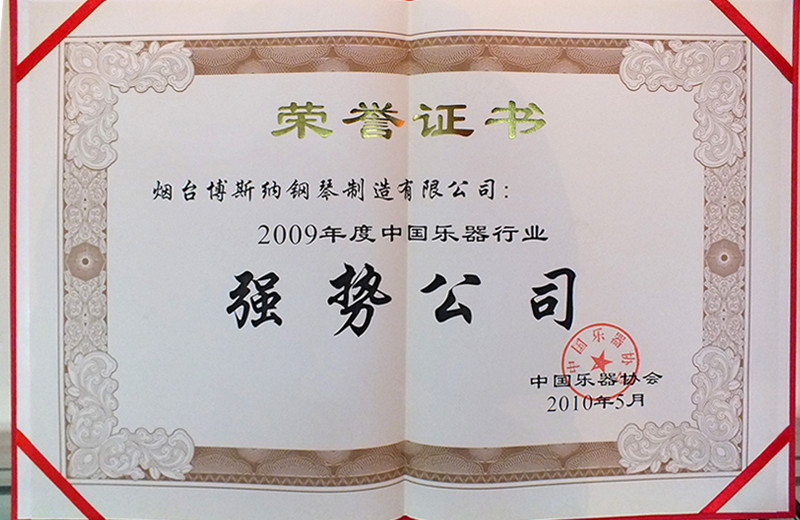 荣誉证书
烟台博斯纳钢琴制造有限公司：
2009年度中国乐器行业
强势公司
中国乐器协会
中国乐器协会
2010年5月